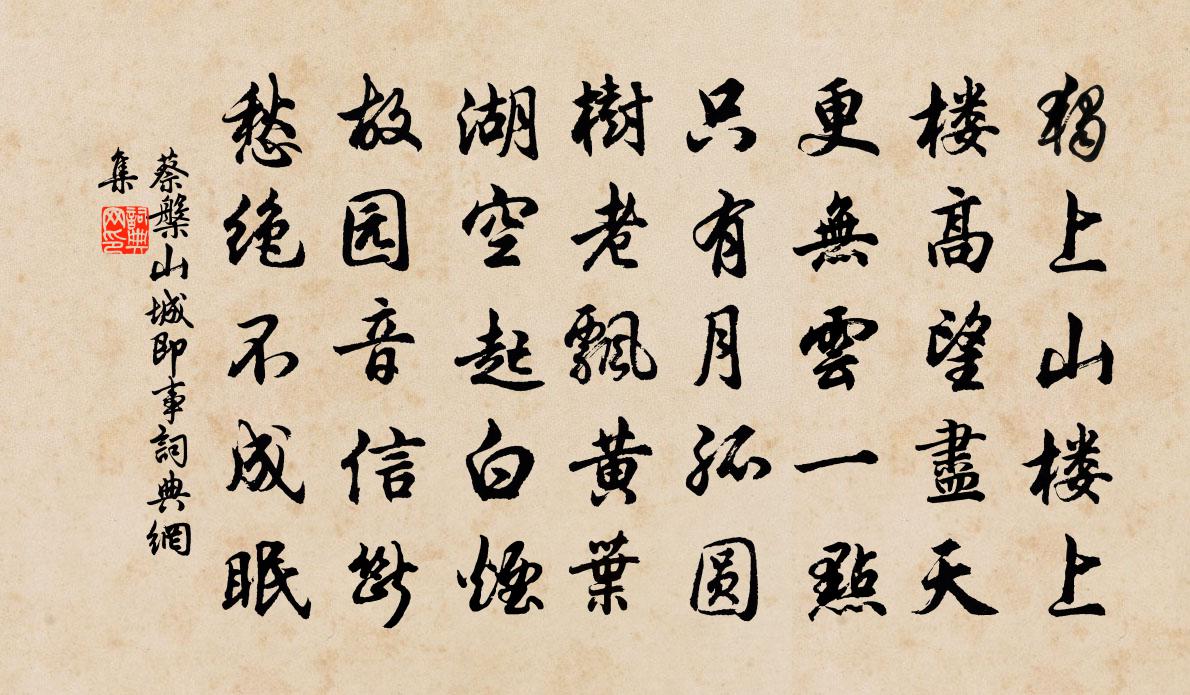 獨上山楼上
楼高望盡天
更無雲一點
只有月孤圆
樹老飄黄葉
湖空起白煙
故园音信斷
愁绝不成眠
蔡槃山城即事詞典網
集
詞典
网印